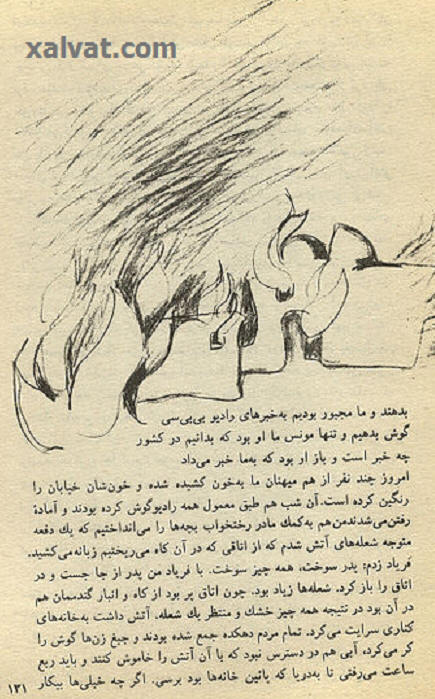 xalvat.com
بدهند و ما مجبور بودیم به‌خبرهای رادیو بی‌بی‌سی
گوش بدهیم و تنها مونس ما او بود که بدانیم در کشور
چه خبر است و باز او بود که به‌ما خبر می‌داد
امروز چند نفر از هم میهنان ما به‌خون کشیده شده و خون‌شان خیابان را
رنگین کرده است. آن شب هم طبق معمول همه رادیوگوش کرده بودند و آمادهٔ
رفتن‌می‌شدندمن‌هم به‌کمك مادر رختخواب بچه‌ها را می‌انداختیم که یك دفعه
متوجه شعله‌های آتش شدم که از اتاقی که در آن کاه می‌ریختیم زبانه‌می‌کشید.
فریاد زدم: پدر سوخت، همه چیز سوخت. با فریاد من پدر از جا جست و در
اتاق را باز کرد. شعله‌ها زیاد بود. چون اتاق پر بود از کاه و انبار گندممان هم
در آن بود در نتیجه همه چیز خشك و منتظر یك شعله. آتش داشت به‌خانه‌های
کناری سرایت می‌کرد. تمام مردم دهکده جمع شده بودند و جیغ زن‌ها گوش را
کر می‌کرد. آبی هم در دسترس نبود که با آن آتش را خاموش کنند و باید ربع
ساعت می‌رفتی تا به‌دریا که پائین خانه‌ها بود برسی. اگر چه خیلی‌ها بیکار
۱۲۱